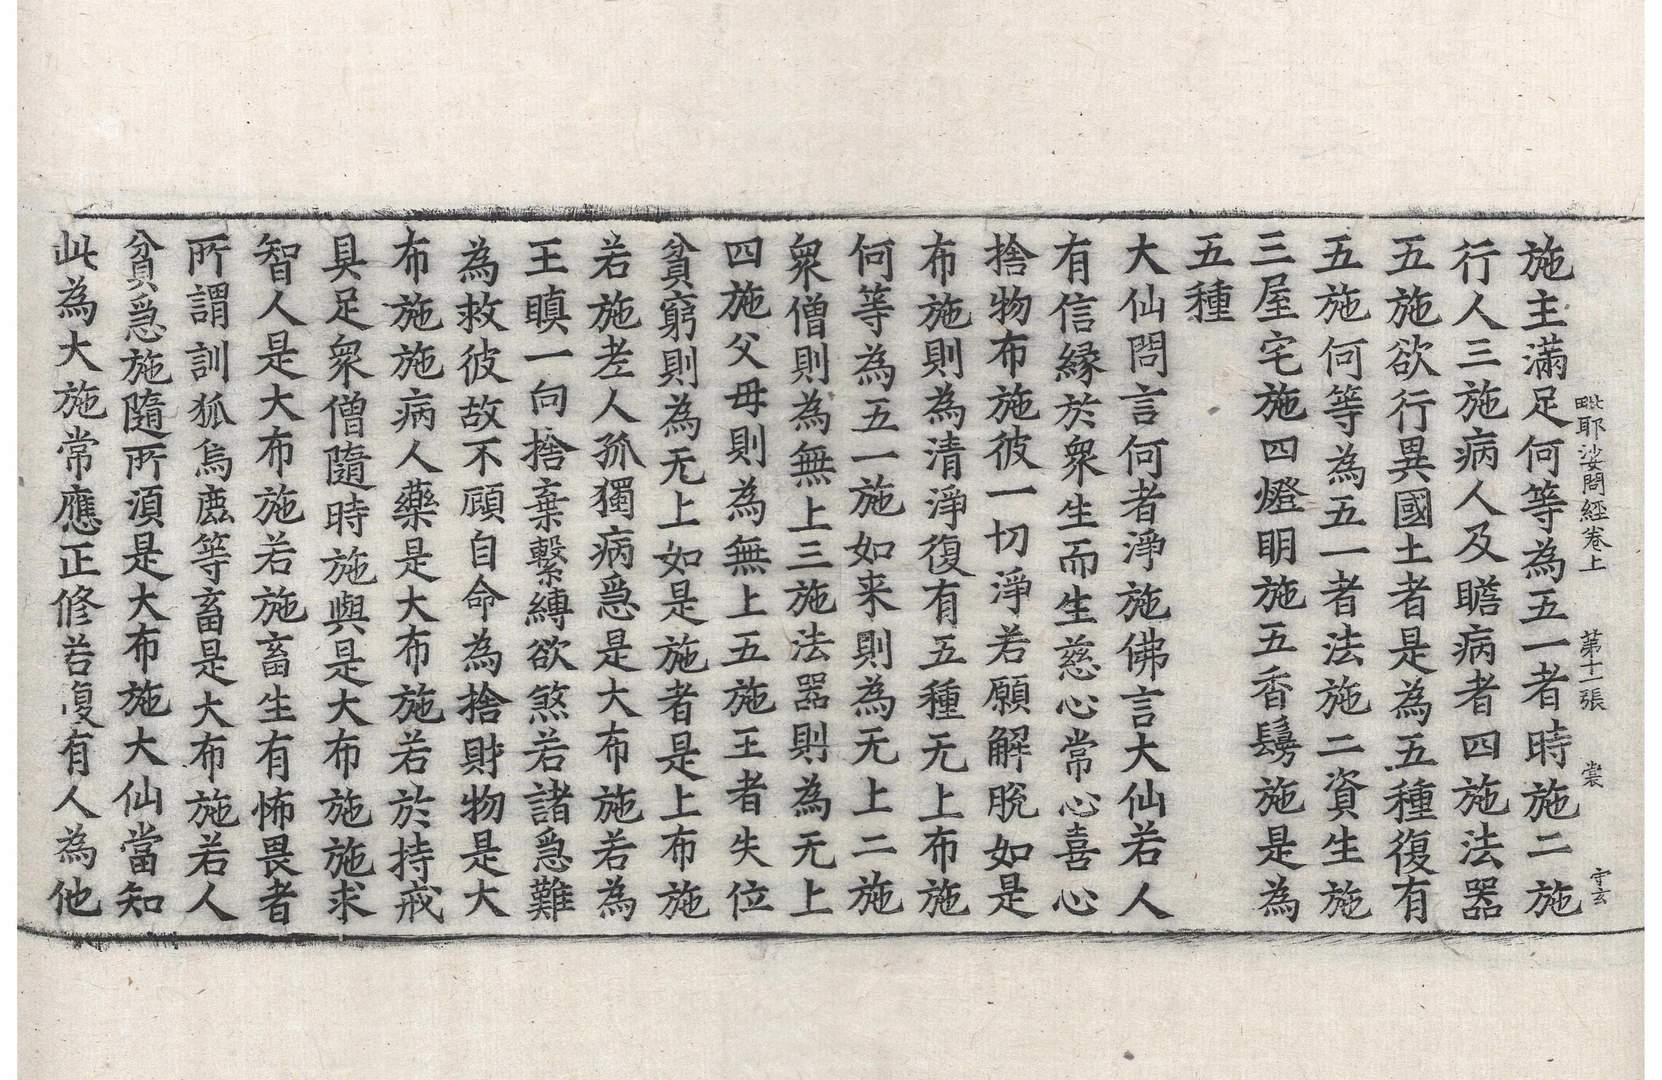 毗耶娑問經卷上　第十一張　裳　守玄
施主滿足何等為五一者時施二施
行人三施病人及瞻病者四施法器
五施欲行異國土者是為五種復有
五施何等為五一者法施二資生施
三屋宅施四燈明施五香鬘施是為
五種
大仙問言何者淨施佛言大仙若人
有信緣於衆生而生慈心常心喜心
捨物布施彼一切淨若願解脫如是
布施則為清淨復有五種无上布施
何等為五一施如来則為无上二施
衆僧則為無上三施法器則為无上
四施父母則為無上五施王者失位
貧窮則為无上如是施者是上布施
若施老人孤獨病急是大布施若為
王瞋一向捨棄繫縛欲煞若諸急難
為救彼故不顧自命為捨財物是大
布施施病人藥是大布施若於持戒
具足衆僧隨時施與是大布施施求
智人是大布施若施畜生有怖畏者
所謂訓狐烏鹿等畜是大布施若人
貧急施隨所須是大布施大仙當知
此為大施常應正修若復有人為他